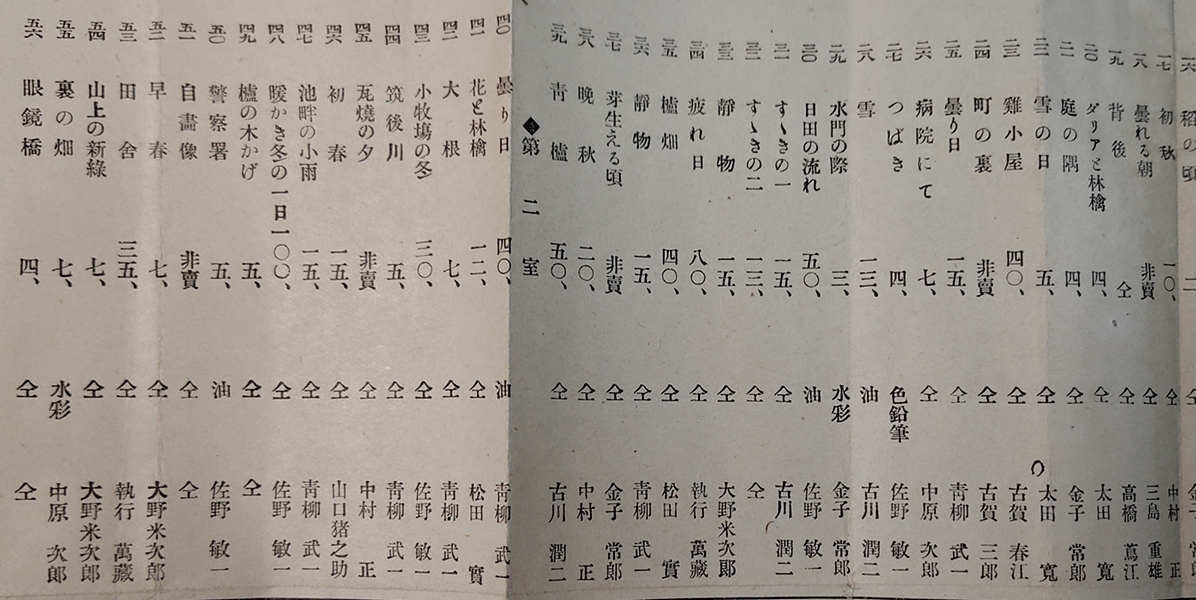 一六 稻の頃 仝
一七 初秋 一〇、 仝 中村 正
一八 曇れる朝 非賣 仝 三島 重雄
一九 背後 仝 仝 高橋 蔦江
二〇 ダリアと林檎 四、 仝 太田 寬
二一 庭の隅 四、 仝 金子 常郎
二二 雪の日 五、 仝 太田 寬
二三 雞小屋 四〇、 仝 古賀 春江
二四 町の裏 非賣 仝 古賀 三郎
二五 曇り日 一五、 仝 靑柳 武一
二六 病院にて 七、 仝 中原 次郎
二七 つばき 四、 色鉛筆 佐野 敏一
二八 雪 一三、 油 古川 潤二
二九 水門の際 三、 水彩 金子 常郎
三〇 日田の流れ 五〇、 油 佐野 敏一
三一 すゝきの一 一五、 仝 古川 潤二
三二 すゝきの二 一三、 仝 仝
三三 靜物 一五、 仝 大野米次郎
三四 疲れ日 八〇、 仝 執行 萬藏
三五 櫨畑 四〇、 仝 松田 實
三六 靜物 一五、 仝 靑柳 武一
三七 芽生える頃 非賣 仝 金子 常郎
三八 晩秋 二〇、 仝 中村 正
三九 靑櫨 五〇、 仝 古川 潤二
◆第二室
四〇 曇り日 四〇、 油 靑柳 武一
四一 花と林檎 一二、 仝 松田 實
四二 大根 七、 仝 靑柳 武一
四三 小牧塲の冬 三〇、 仝 佐野 敏一
四四 筑後川 五、 仝 靑柳 武一
四五 瓦燒の夕 非賣 仝 中村 正
四六 初春 一五、 仝 山口猪之助
四七 池畔の小雨 一五、 仝 靑柳 武一
四八 暖かき冬の一日 一〇〇、 仝 佐野 敏一
四九 櫨の木かげ 五、 仝 仝
五〇 警察署 五、 油 佐野 敏一
五一 自畵像 非賣 仝 仝
五二 早春 七、 仝 大野米次郎
五三 田舍 三五、 仝 執行 萬藏
五四 山上の新綠 七、 仝 大野米次郎
五五 裏の畑 七、 水彩 中原 次郎
五六 眼鏡橋 四、 仝 仝